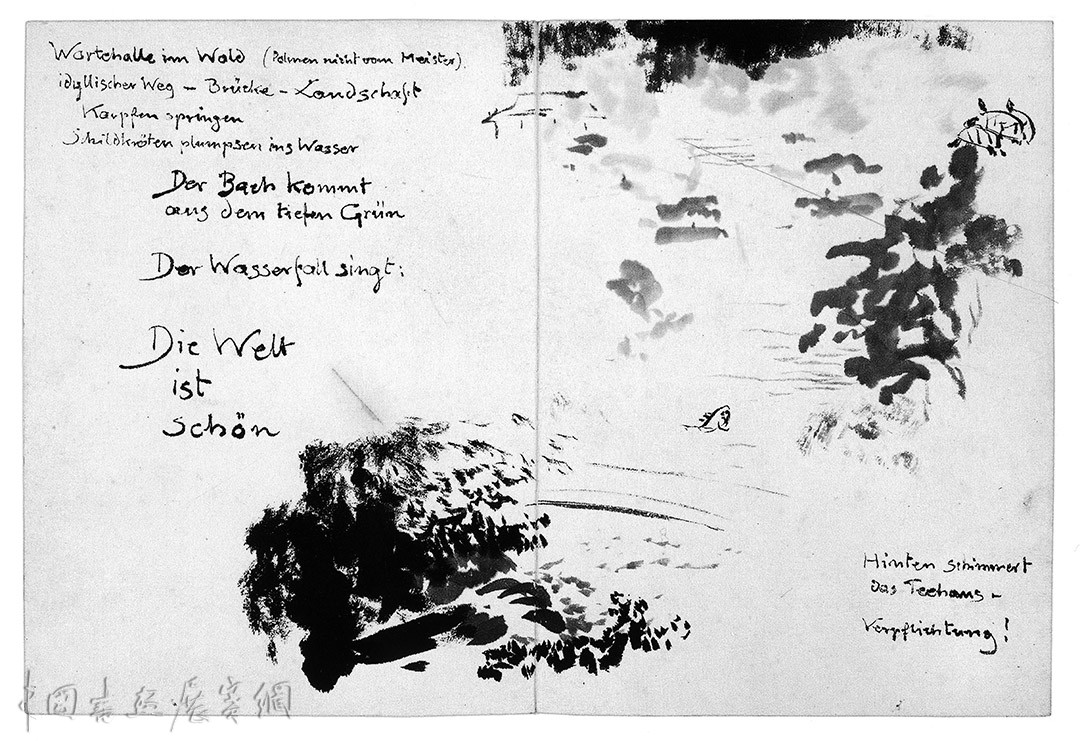 Wartehalle im Wald (Palmen nicht vom Meister).
idyllischer Weg – Brücke – Landschaft
Karpfen springen
Schildkröten plumpsen ins Wasser
Der Bach kommt
aus dem tiefen Grün
Der Wasserfall singt:
Die Welt
ist
schön
Hinten schimmert
das Teehaus –
Verpflichtung!
中国書法展賽網